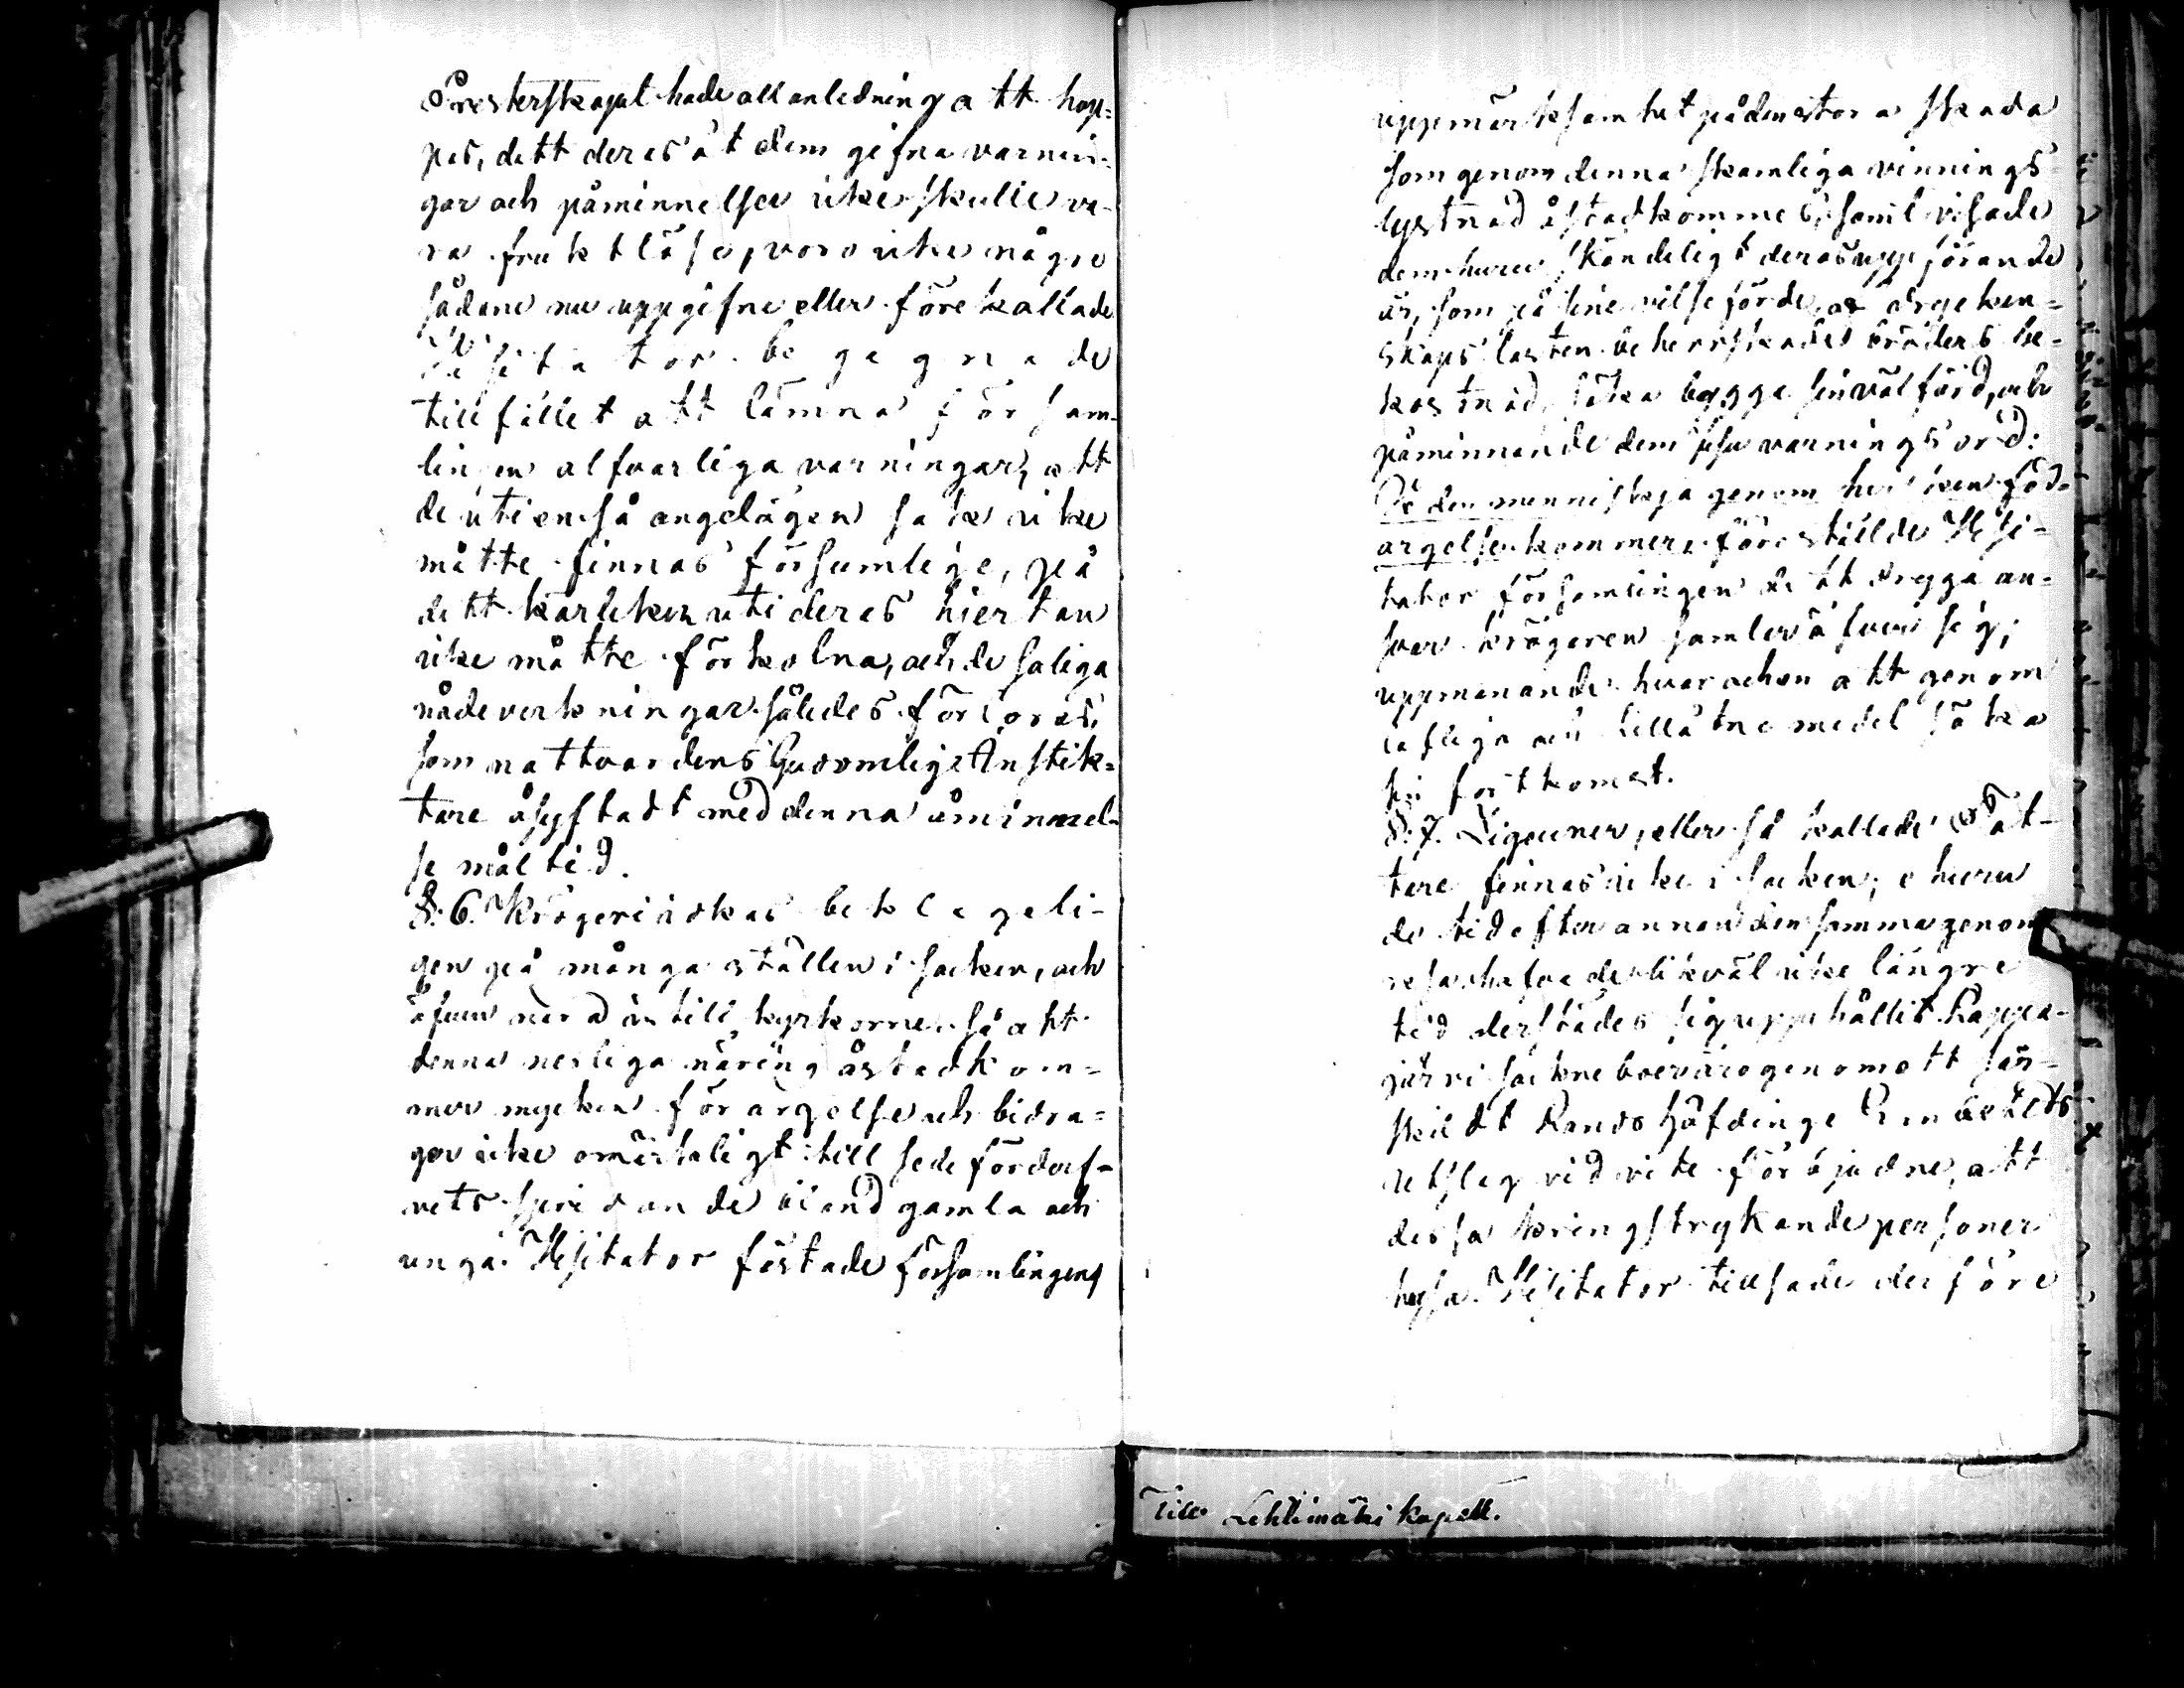 Presterskapet hade all anledning att hop=
pas, dett deras åt dem gifna varnin-
gar och påminnelser icke skulle va-
ra fruktlöse, voro icke någre
sådane nu uppgifne eller förekallade
Visitator begagnade
tillfället att lämna församm-
lingen alfvarliga varningar, att
de uti en så angelägen sak icke
måtte finnas försumlige, på
dett kärleken uti deras hiertan
icke måtte förkolna, och de saliga
nådeverkningar således förloras,
som nattvardens Gudomlige Instik=
tare åsyftadt med denna åminnel-
se måltid.
§. 6. Krögeri idkas beklageli-
gen på många ställen i socken, och
äfven när a in till kyrkorne så att
denna nesliga näring åstadkom=
mer mycken förargelse och bidra=
ger icke omärkeligt till sedefördref-
vets spridande bland gamla och
unga. Visitator fästade församlingens
uppmärksamhet på den stora skada
som genom denna skamliga vinnings
lystnad åstadkommes, samt visade
dem huru skändeligt deras uppförande
är, som på sine vilseförde, af drycken=
skaps lasten beherrskades bröders be-
kostnad, söka bygga sin välfärd, och
påminnande dem Jesu varnings ord:
Ve den menniskja genom hvilken för-
argelsen kommer, förestälde Visi-
tator församlingen det trygga an-
svar krögaren samlar öfver sig;
uppmanande hvar och en att genom
lofliga och tillåtne medel söka
sin fortkomst.
§. 7. Zigeuner, eller så kallade Tat-
tare finnas icke i socken; ehuru
de tid efter annan densamma genom
resa, hafva de likväl icke längre
tid derstädes sig uppehållit. Lappa-
järvi sockneboer äro genom ett sär-
skildt Landshöfdinge Embetets
utslag vid vite förbjudne, att
dessa kringstrykande personer
hysa. Visitator tillsade derföre
Till Lehtimäki kapell.